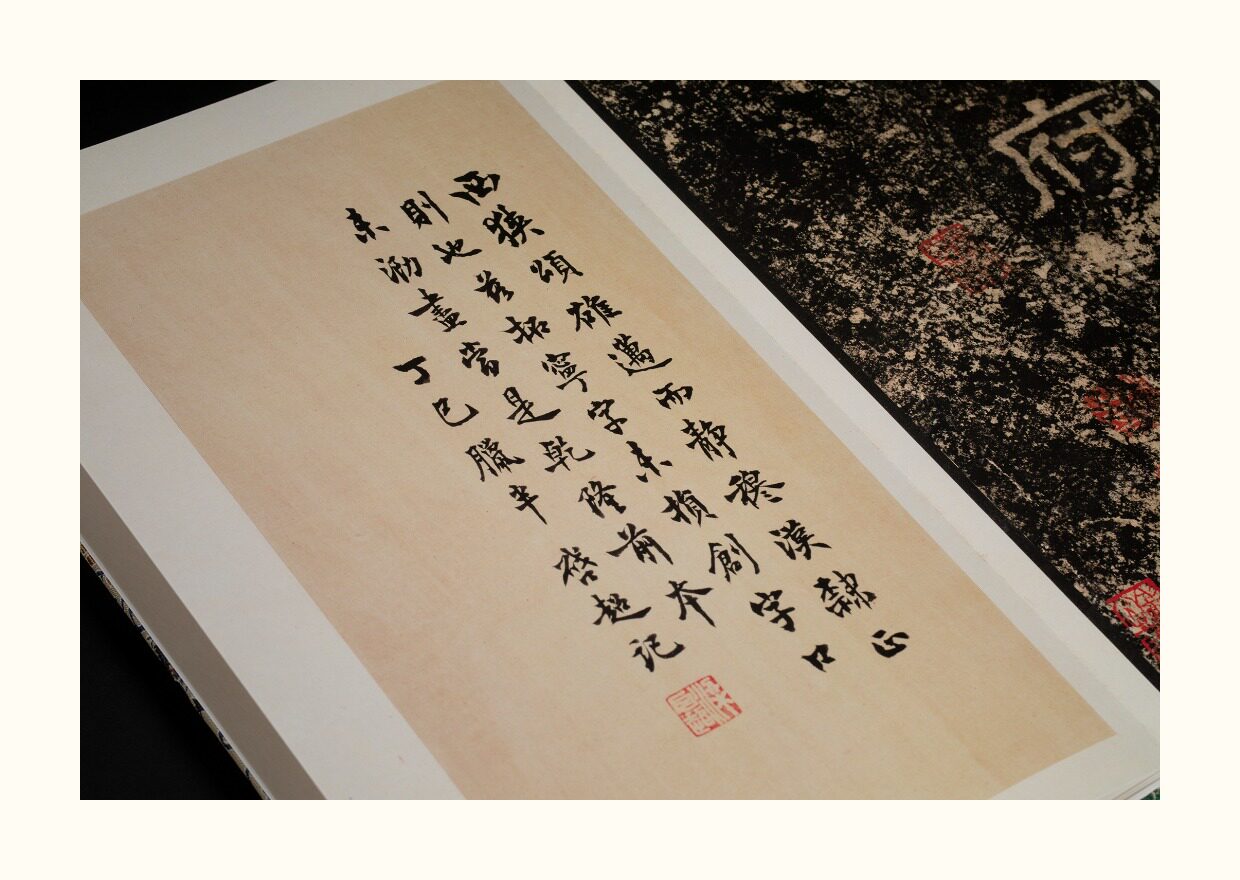 府
西狹頌雄邁而靜穆漢隸正
則也茲拓寧字未損創字口
未泐畫當是乾隆前本
丁巳臘半啟超記